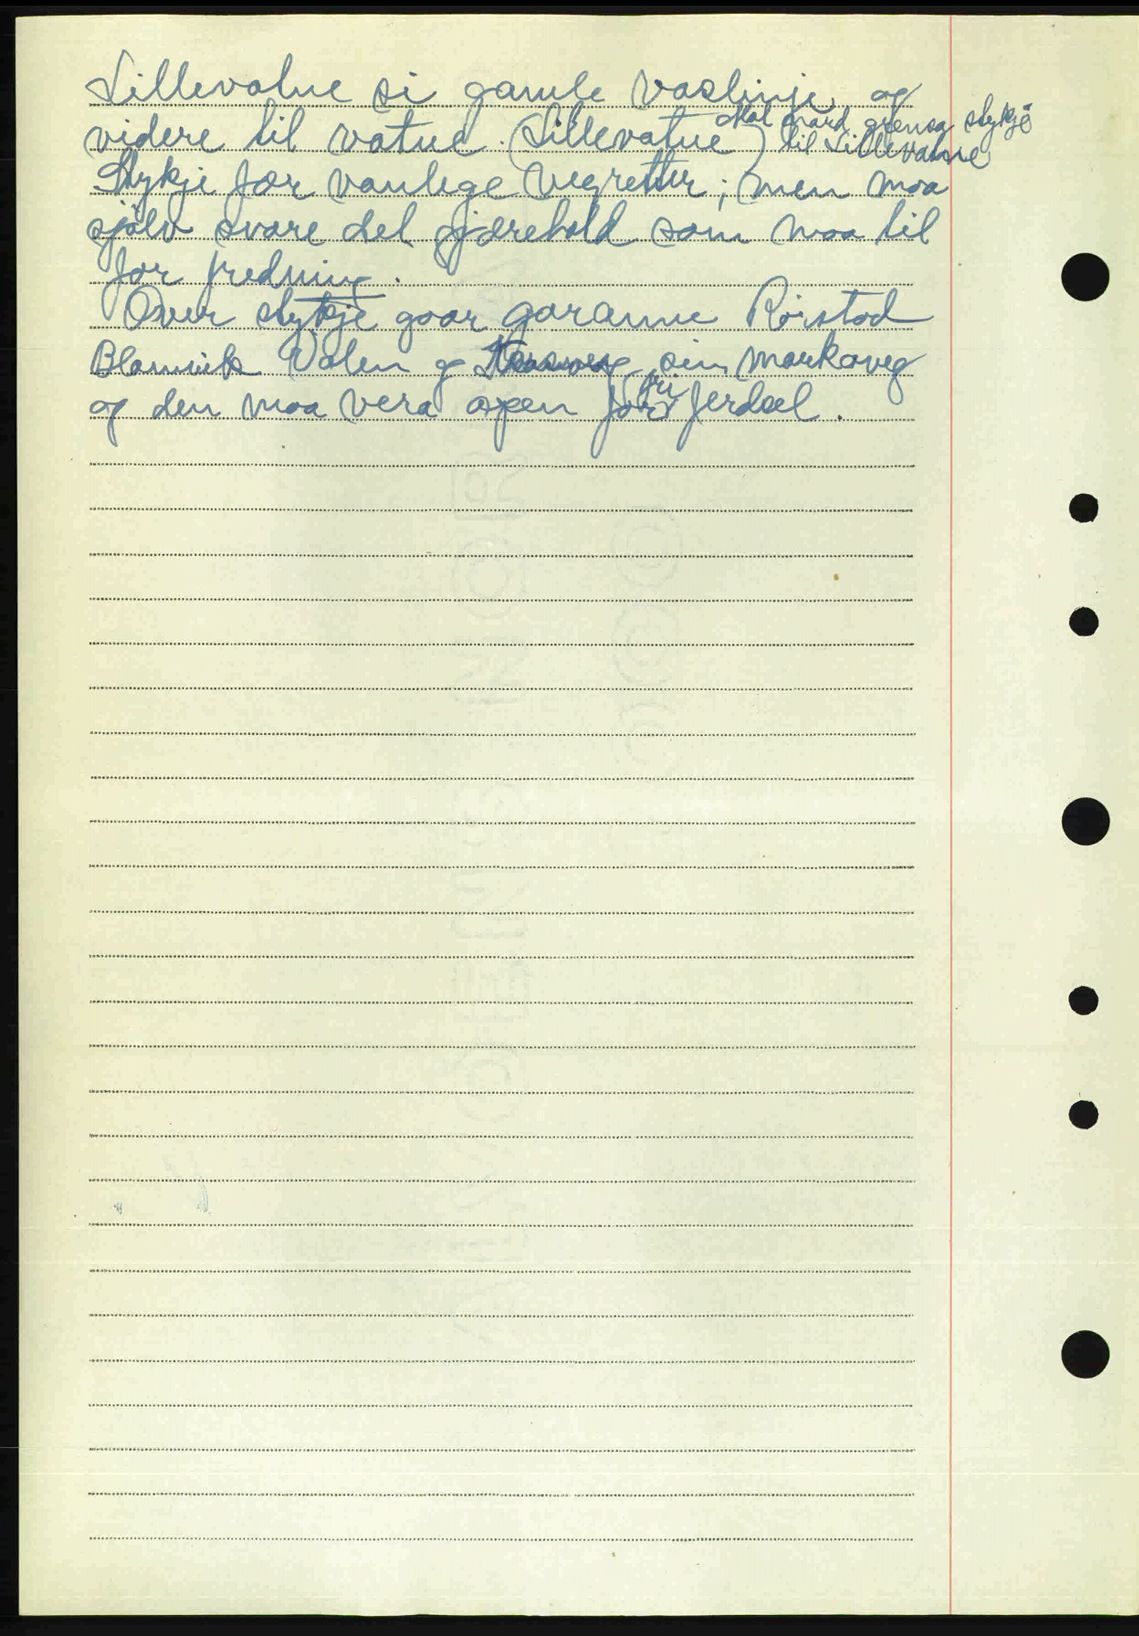 Lillevatne si gamle vaslinje, og
videre til vatne. (Lillevatne) mot nord grensa stykje
til Lillevatne
Stykje fær vanlege vegretter; men maa
sjølv svare det gjærehold som maa til
for fredning.
Over stykje gaar garanne Rørstad
Blamvik Valen og sin markaveg
og den maa vera open for fri ferdsel.